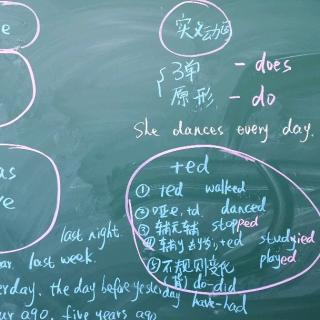 e
实义动词
3单 - does
原形 - do
She dances every day.
as
ve
+ed
① +ed walked
② 哑e, +d danced
③ 辅元辅 stopped
④ 辅y studyied
played
⑤ 不规则变化
do-did
have-had
last night.
last week.
the day before yesterday
ago, five years ago